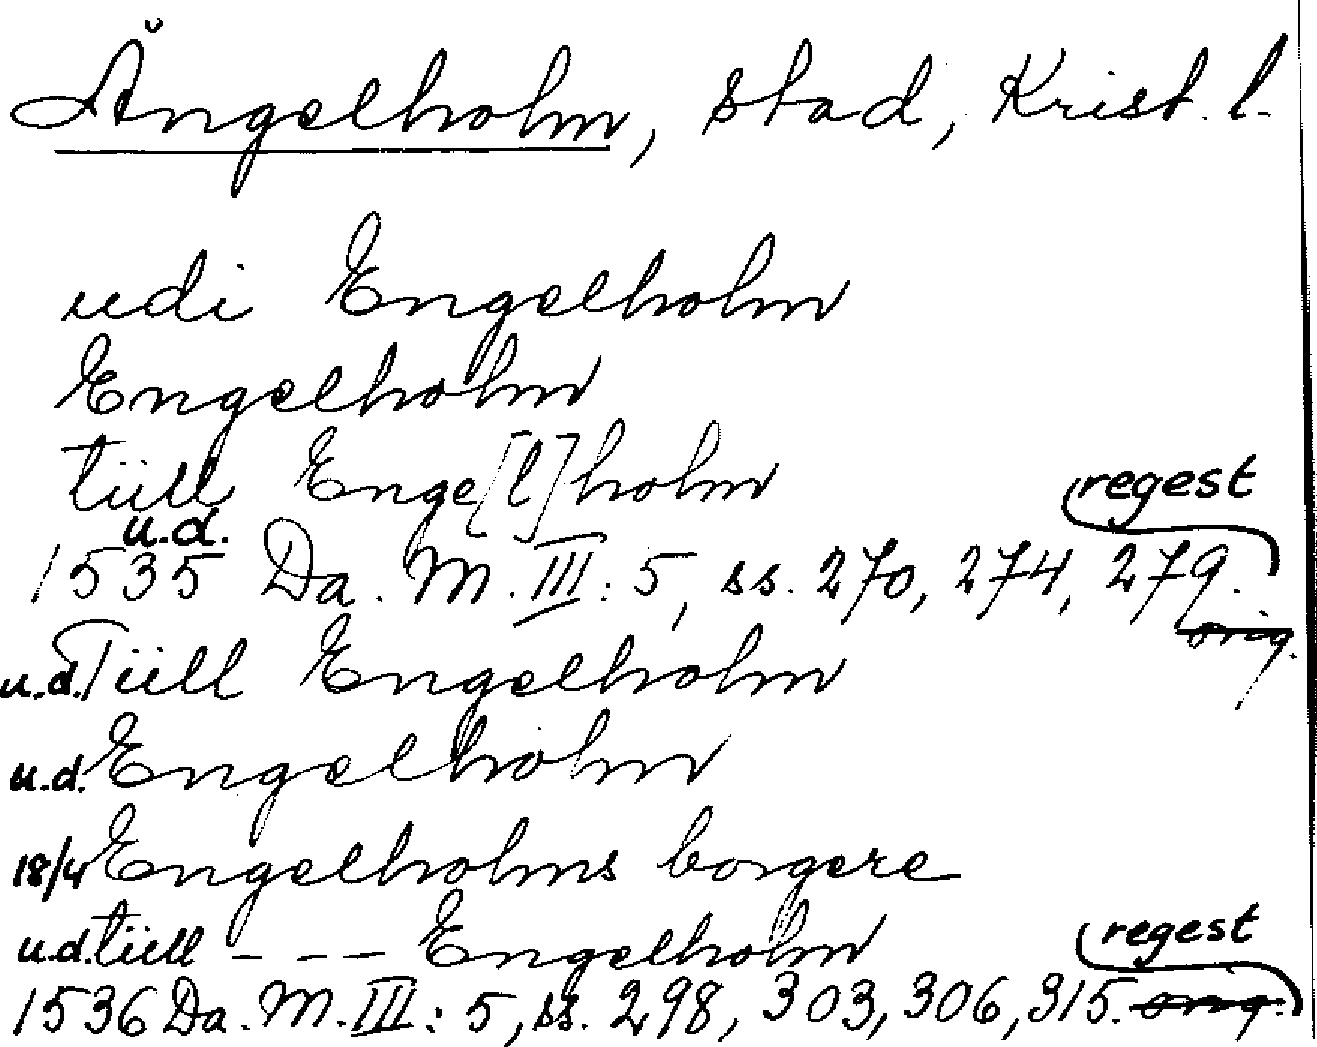 Ängelholm, stad, Krist. l.
udi Engelholm
Engelholm
tüll Enge[l]holm
regest
u.d.
1535 Da. M. III: 5, ss. 270, 274, 279.
orig.
u.d. Tüll Engelholm
u.d. Engelholm
18/4 Engelholms borgere
u.d. tüll - - - Engelholm
regest
1536 Da. M. III: 5, ss. 298, 303, 306, 315. orig.